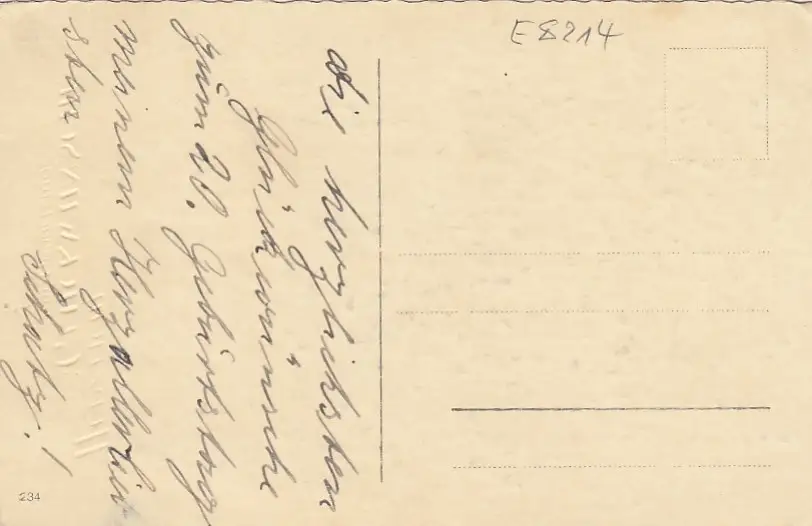 E8214
die herzlichsten
Glückwünsche
zum 20. Geburtstag
meinem Herzallerlieb
sten
Schatz!
234